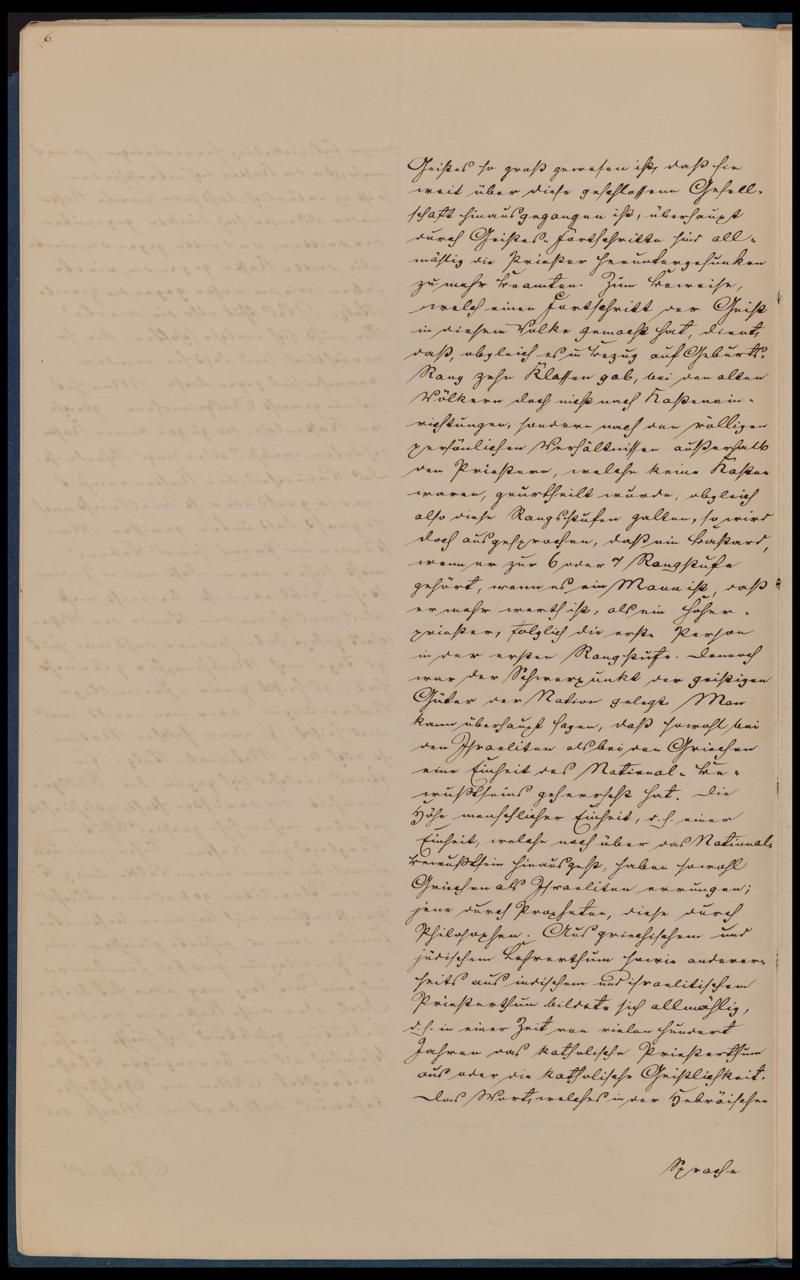 6
Geistes so groß gewesen ist, daß sie
weit über diese geschlossene Gesell-
schaft hinausgegangen ist, überhaupt
durch Geistes-Fortschritte sind all-
mählig die Priester heruntergesunken
zu mehr Beamten. Zum Beweise,
welch einen Fortschritt der Geist
in diesem Volke gemacht hat, dient,
daß, obgleich es in Bezug auf Geburts-
Rang zehn Klassen gab, bei den alten
Völkern doch nicht nach Kastenein-
richtungen, sondern nach den völligen
persönlichen Verhältnissen außerhalb
den Priestern, welche keine Kasten
waren, geurtheilt wurde; obgleich
also diese Rangstufen galten, so wird
doch ausgesprochen, daß ein Bastard,
wenn er zur 6 oder 7 Rangstufe
gehört, wenn es ein Mann ist, daß
er mehr werth ist, als ein Hoher-
priester, folglich die erste Person
in der ersten Rangstufe. Dennoch
war der Schwerpunkt der geistigen
Güter der Nation gelegt. Man
kann überhaupt sagen, daß sowohl bei
den Israeliten als bei den Griechen
eine Einheit des National-Be-
wußtseins geherrscht hat. Die
Höhe menschlicher Einheit, d. h. einer
Einheit, welche noch über das National-
bewußtsein hinausgeht, haben sowohl
Griechen als Israeliten errungen;
jene durch Propheten, diese durch
Philosophen. Aus griechischem und
jüdischem Lehrerthum sowie anderer-
seits aus indischem und israelitischem
Priesterthum bildete sich allmählig,
d. h. in einer Zeit von vielen hundert
Jahren das katholische Priesterthum
aus oder die katholische Geistlichkeit.
Das Wort, welches in der Hebräischen
Sprache